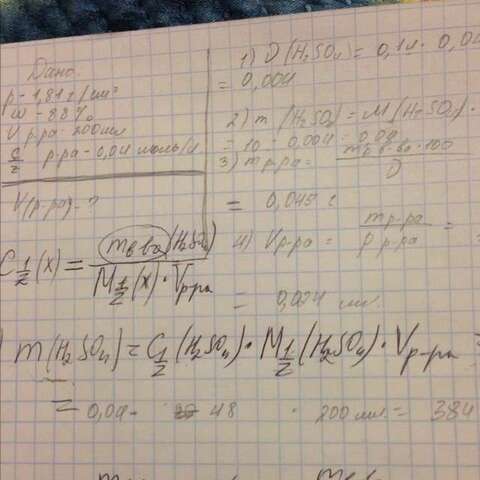 Дано
ρ - 1,81 г/см³
ω - 88%
V р.ра - 200мл
р.ра - 0,04 моль/л
V(р-ра) - ?
1) D(H₂SO₄) = 0,1н · 0,04
= 0,004
2) m(H₂SO₄) = M(H₂SO₄) ·
= 10 · 0,004 = 0,04
3) m р-ра = m р.в-ва · 100 / D
= 0,045 г
4) V р-ра = m р-ра / ρ р-ра =
= 0,024 мл.
C 1/z (x) = m в-ва (H₂SO₄) / M 1/z (x) · V р-ра
m(H₂SO₄) = C 1/z (H₂SO₄) · M 1/z (H₂SO₄) · V р-ра =
= 0,04 · 48 · 200 мл. = 384